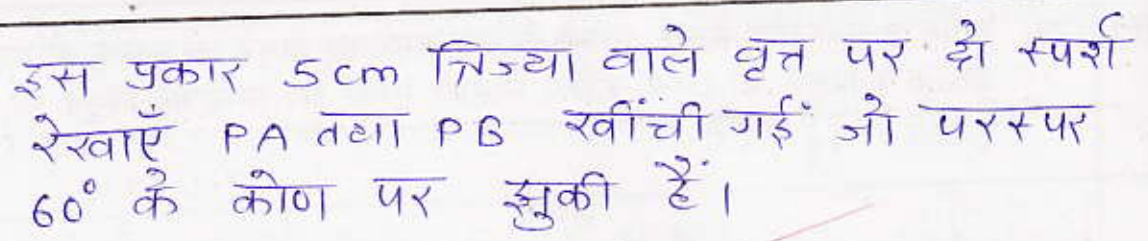 इस प्रकार 5cm त्रिज्या वाले वृत्त पर दो स्पर्श
रेखाएँ PA तथा PB खींची गईं जो परस्पर
60° के कोण पर झुकी हैं।